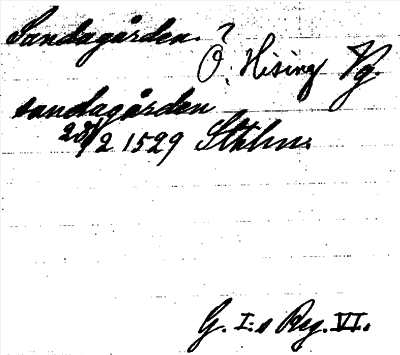 Sandagården. ?
Ö. Hising Vg.
sandagården
25/2 1529 Sthlm.
G. I:s Reg. VI.